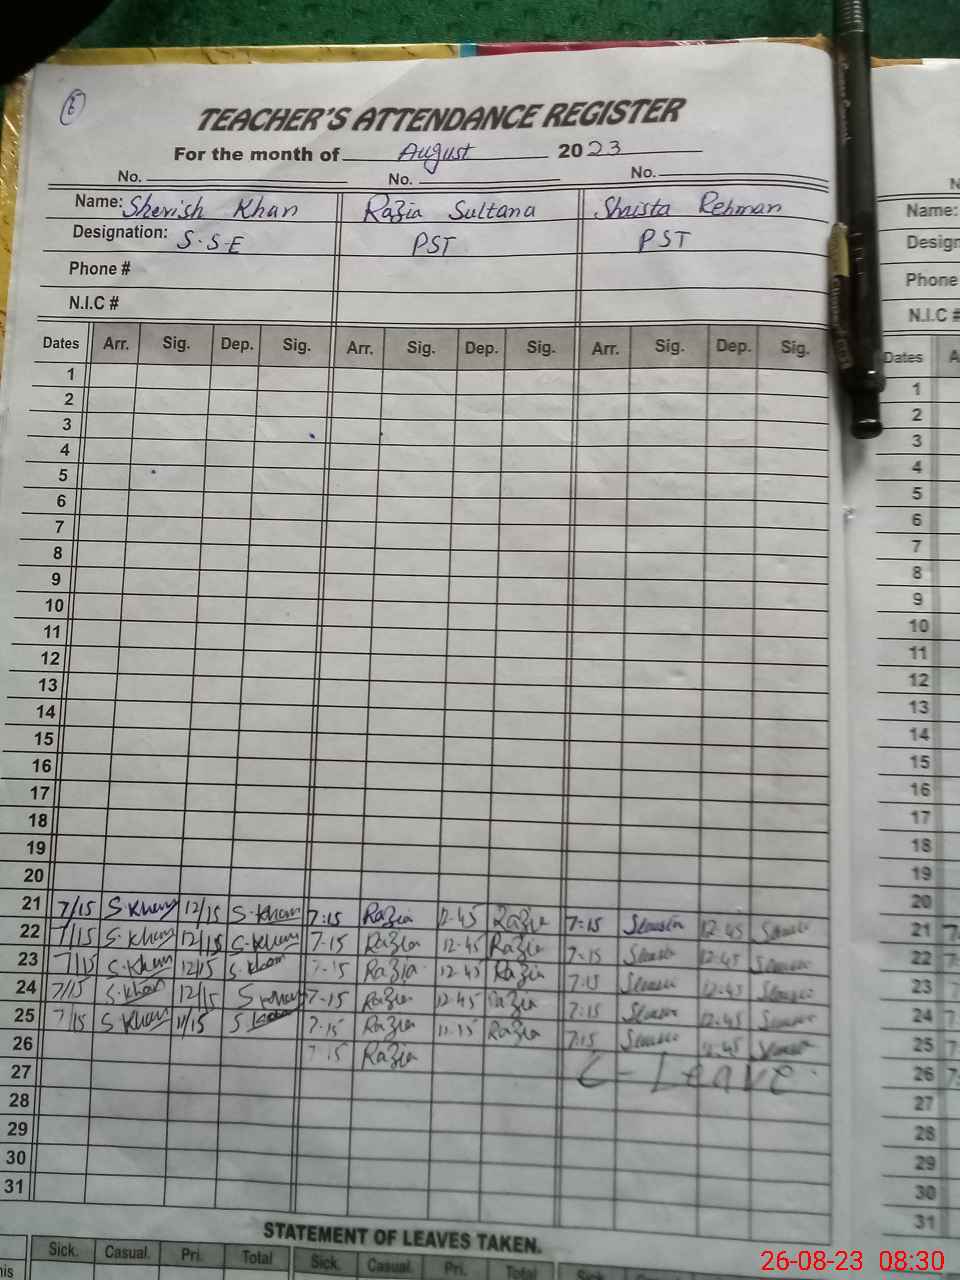 6
TEACHER'S ATTENDANCE REGISTER
For the month of August 2023
No. No. No.
Name: Sherish Khan Razia Sultana Shaista Rehman
Designation: S.S.E PST PST
Phone #
N.I.C #
Dates Arr. Sig. Dep. Sig. Arr. Sig. Dep. Sig. Arr. Sig. Dep. Sig.
1
2
3
4
5
6
7
8
9
10
11
12
13
14
15
16
17
18
19
20
21 7/15 S.Khan 12/15 S.Khan 7:15 Razia 12.45 Razia 7:15 12.45
22 7/15 S.Khan 12/15 S.Khan 7-15 Razia 12-45 Razia 7:15 12.45
23 7/15 S.Khan 12/15 S.Khan 7-15 Razia 12.45 Razia 7:15 12.45
24 7/15 S.Khan 12/15 S Khan 7-15 Razia 12.45 Razia 7:15 12.45
25 7/15 S Khan 11/15 S Khan 7.15 Razia 11.15 Razia 7:15
26 7.15 Razia C-Leave
27
28
29
30
31
STATEMENT OF LEAVES TAKEN.
Sick. Casual. Pri. Total Sick. Casual. Pri. Total Sick. Casual.
Name:
Phone
N.I.C #
Dates
1
2
3
4
5
6
7
8
9
10
11
12
13
14
15
16
17
18
19
20
21
22
23
24
25
26
27
28
29
30
31
26-08-23 08:30